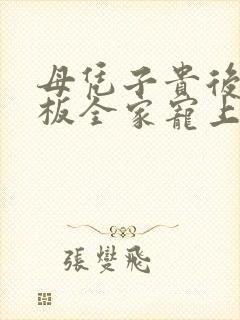 母凭子貴後
板全家寵上
張燮飛